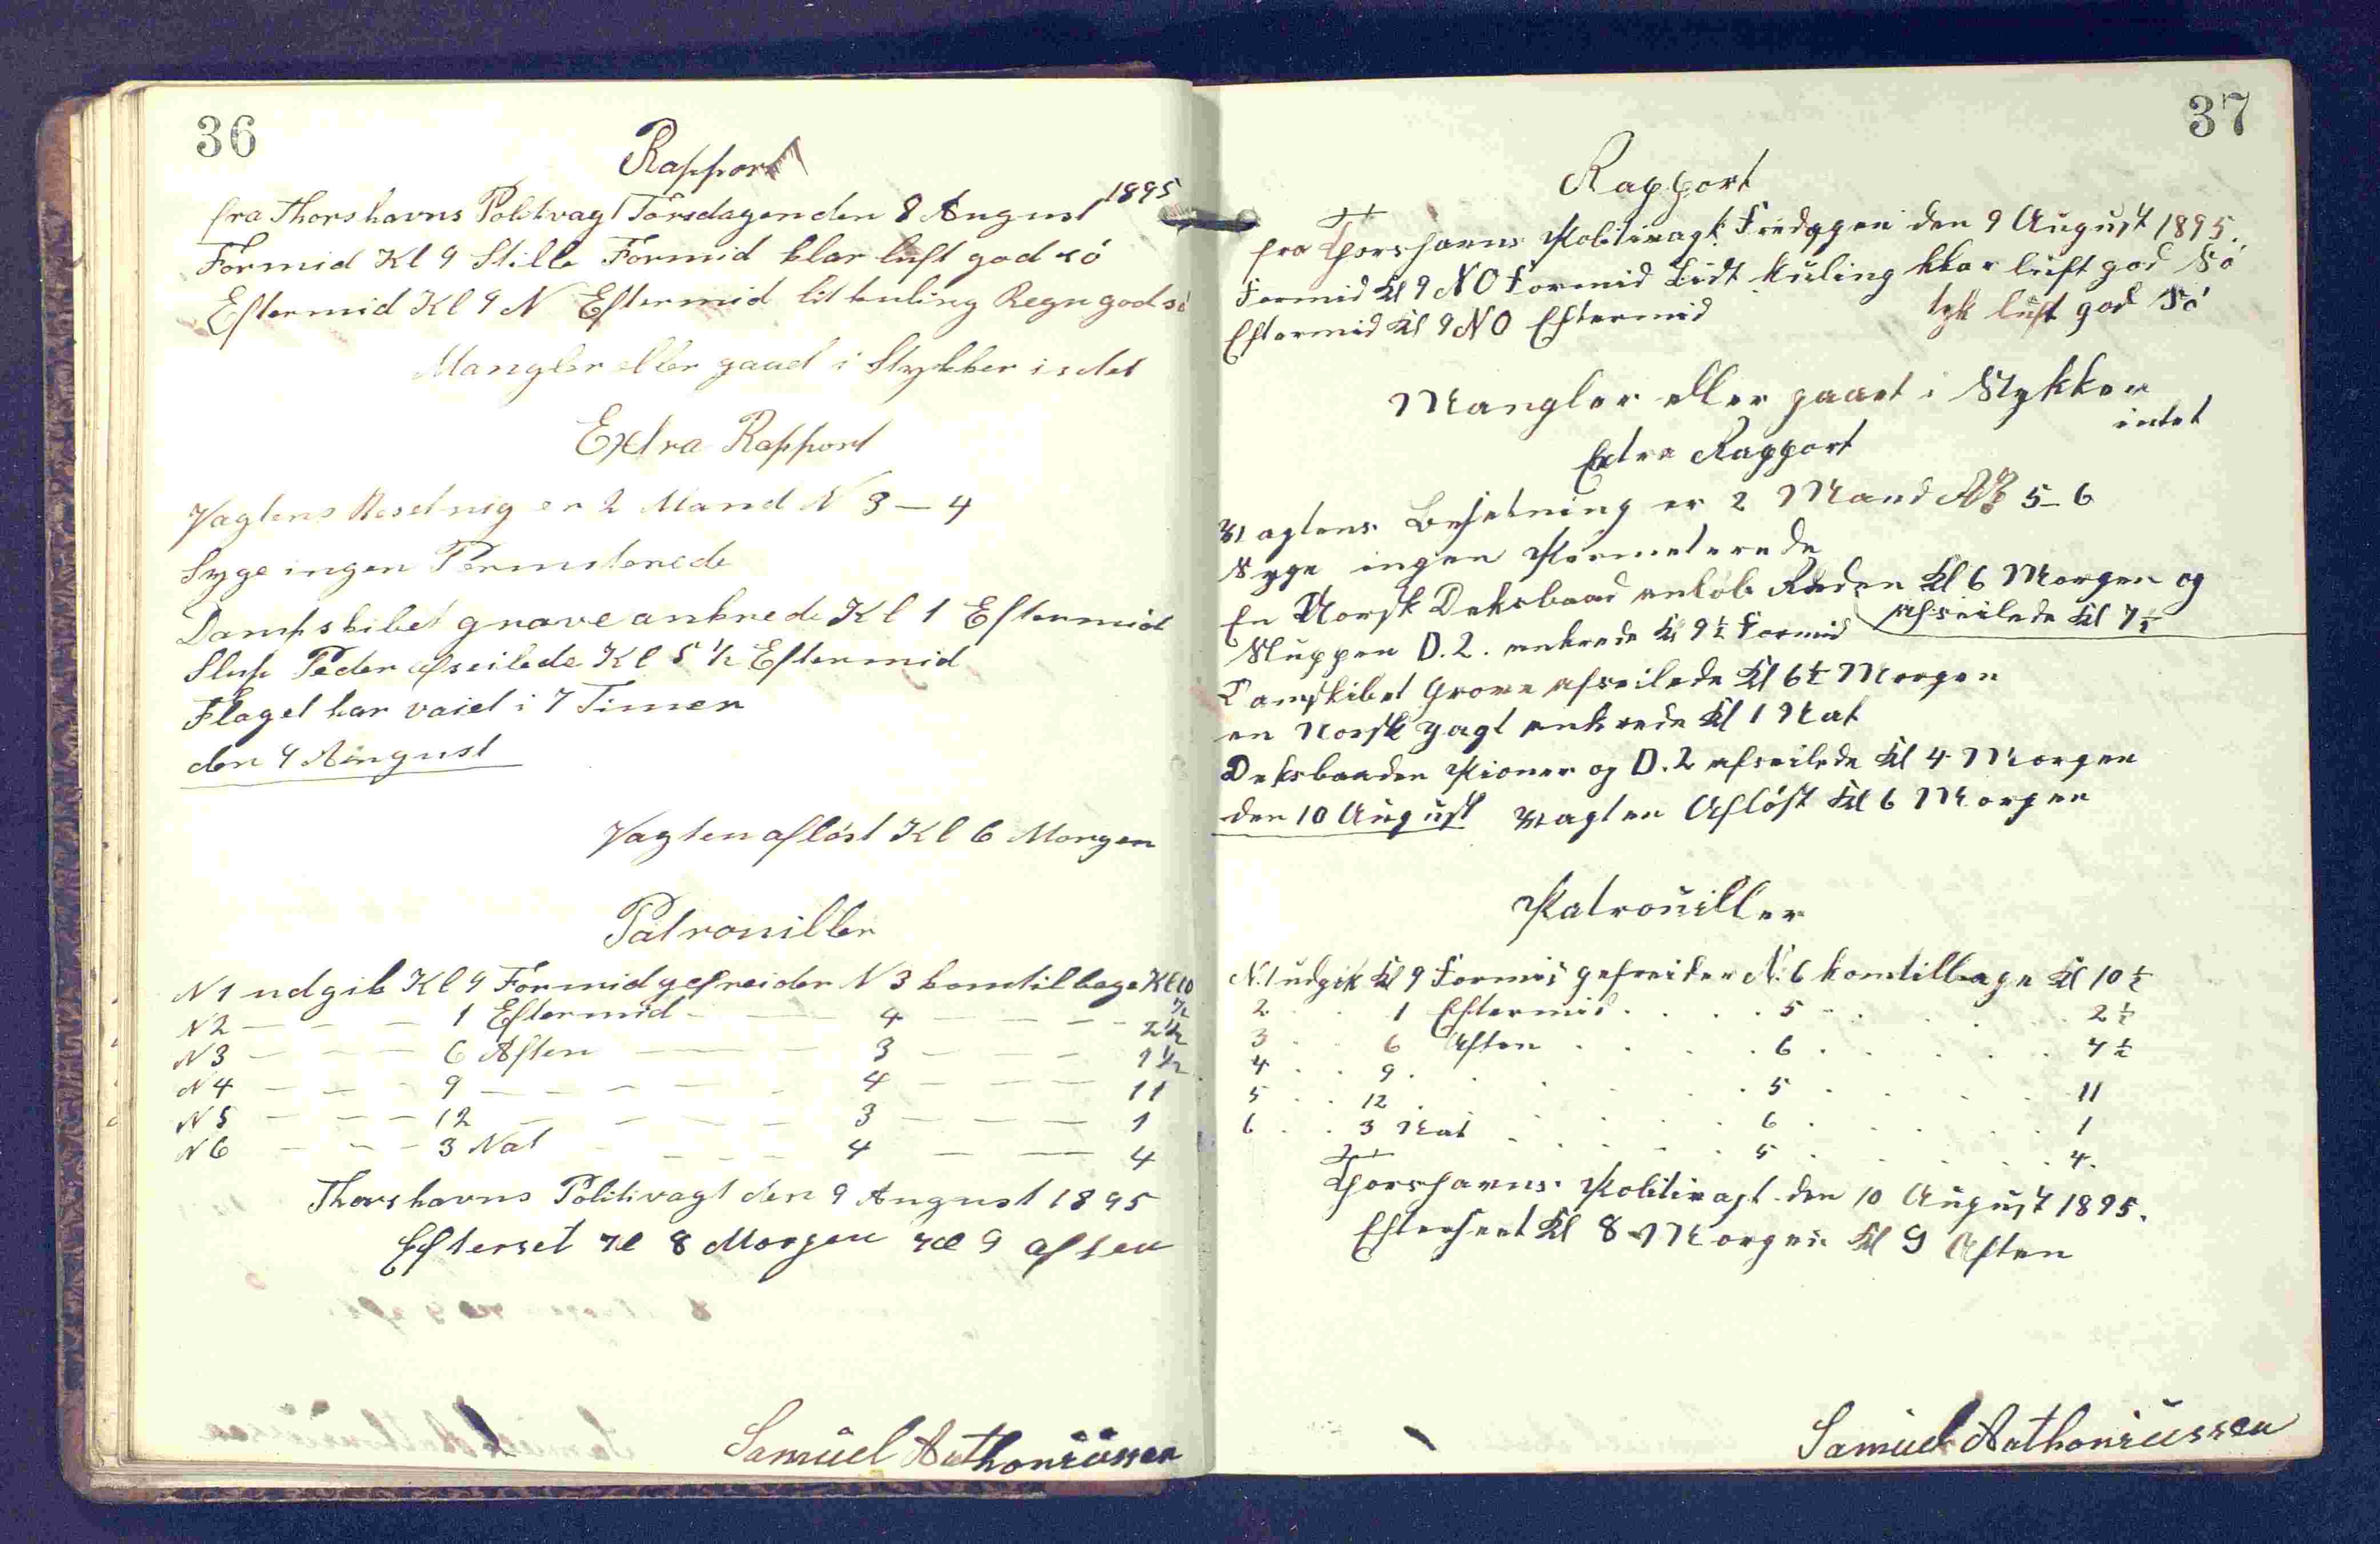 36
Rapport
fra Thorshavns Politivagt Torsdagen den 8 August 1895
Formid Kl 9 Stille Formid klar luft god sö
Eftermid Kl 9 N Eftermid lit kuling Regn god sö
Mangler eller gaad i Stykker indet
Extra Rapport
Vagtens Besetnig er 2 Mand N 3 — 4
Syge ingen Permiterede
Dampskibet grove ankrede Kl 1 Eftermid
Slup Peder afseilede Kl 5 1/2 Eftermid
Flaget har vaiet i 7 Timer
den 9 August
Vagten aflöst Kl 6 Morgen
Patrouiller
N 1 udgik Kl 9 Formid gefreider N 3 kom tilbage Kl 10 1/2
N 2 — — — 1 Eftermid — — 4 — — — 2 1/2
N 3 — — — 6 Aften — — 3 — — 7 1/2
N 4 — — — 9 — — — — 4 — — — 11
N 5 — — — 12 — — — — 3 — — — 1
N 6 — — — 3 Nat — — — 4 — — 4
Thorshavns Politivagt den 9 August 1895
Efterset Kl 8 Morgen Kl 9 aften
Samuel Anthoniussen
37
Rapport
fra Thorshavns Politivagt Fredagen den 9 August 1895.
Formid Kl 9 NO Formid Lidt kuling klar luft god Sö
Eftermid Kl 9 NO Eftermid tyk luft god Sö
Mangler eller gaaet i Stykker
intet
Extra Rapport
Vagtens Besetning er 2 Mand No 5 – 6
Syge ingen Permeterede
En Norsk Deksbaad anlöb Reden Kl 6 Morgen og
afseilede Kl 7 1/2
Sluppen D. 2. ankrede Kl 9 1/2 Formid
Damskibet Grove afseilede Kl 6 1/2 Morgen
en Norsk Jagt ankrede Kl 1 Nat
Deksbaaden Pioner og D. 2 afseilede Kl 4 Morgen
den 10 August Vagten Aflöst Kl 6 Morgen
Patrouiller
N. 1 udgik Kl 9 Formid gefreider N. 6 kom tilbage Kl 10 1/2
2 . . 1 Eftermid . . . . 5 . . . . 2 1/2
3 . . 6 Aften . . . . 6 . . . . 7 1/2
4 . . 9 . . . . 5 . . . . 11
5 . . 12 . . . . 6 . . . . 1
6 . . 3 Nat . . . . 5 . . . . 4.
Thorshavns Politivagt den 10 August 1895.
Efterseet Kl 8 Morgen Kl 9 Aften
Samuel Anthoniussen